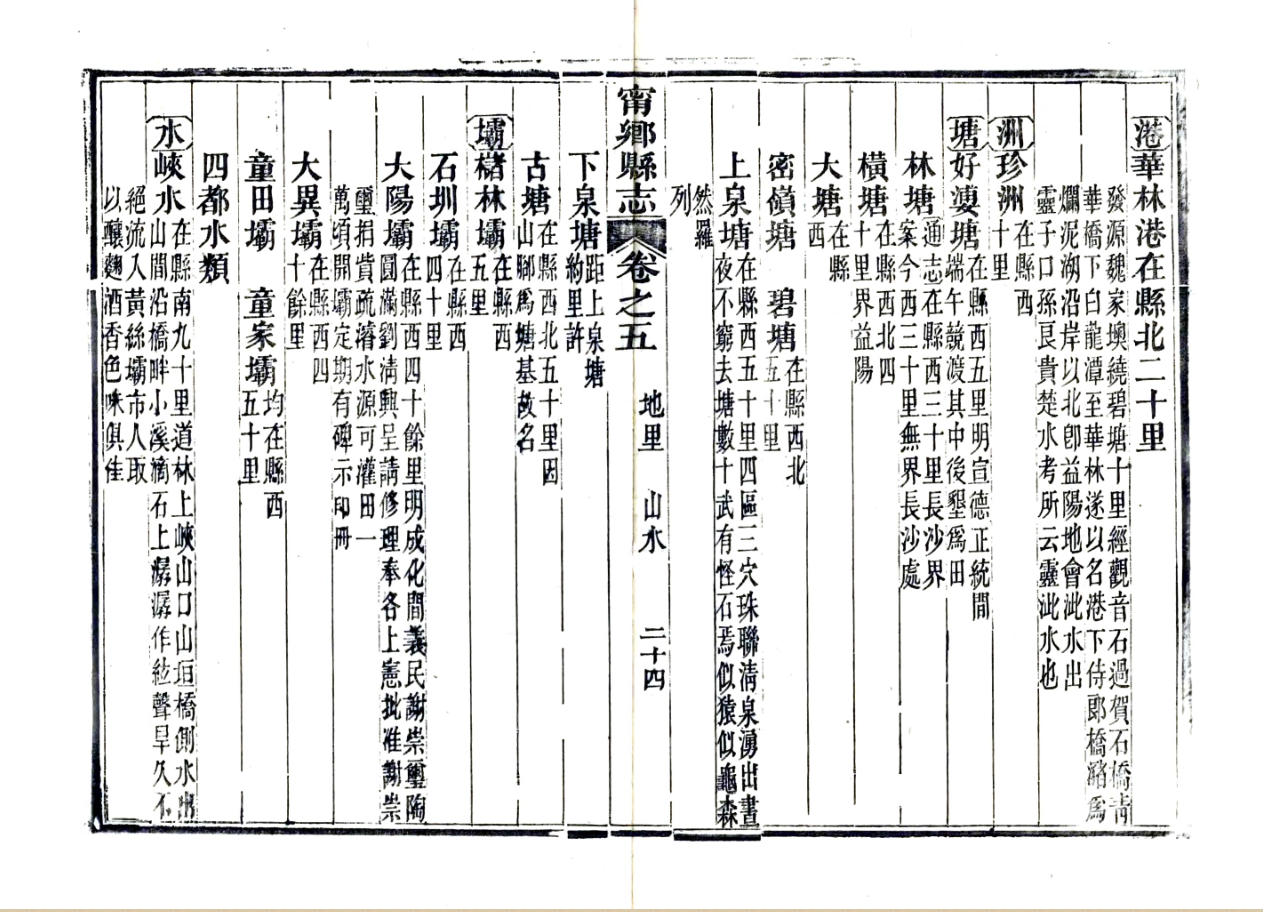 港華林港在縣北二十里
發源魏家墺繞碧塘十里經觀音石過賀石橋青
華橋下白龍潭至華林遂以名港下侍郎橋瀦爲
爛泥湖沿岸以北卽益陽地會泚水出
靈子口孫良貴楚水考所云靈泚水也
洲珍洲在縣西
十里
塘好㛐塘在縣西五里明宣德正統間
端午競渡其中後墾爲田
林塘通志在縣西三十里長沙界
案今西三十里無界長沙處
橫塘在縣西北四
十里界益陽
大塘在縣
西
密嶺塘 碧塘在縣西北
五十里
上泉塘在縣西五十里四區三穴珠聯淸泉湧出晝
夜不窮去塘數十武有怪石焉似猿似龜森
然羅
列
甯鄉縣志 卷之五 地里 山水 二十四
下泉塘距上泉塘
約里許
古塘在縣西北五十里因
山腳爲塘基故名
壩櫧林壩在縣西
五里
石圳壩在縣西
四十里
大陽壩在縣西四十餘里明成化間義民謝崇璽陶
圓滿劉淸興呈請修理奉各上憲批准謝崇
璽捐貲疏濬水源可灌田一
萬頃開壩定期有碑示印冊
大異壩在縣西四
十餘里
童田壩 童家壩均在縣西
五十里
四都水類
水峽水在縣南九十里道林上峽山口山垣橋側水出
山間沿橋畔小溪滴石上潺潺作絃聲旱久不
絕流入黃絲壩市人取
以釀麴酒香色味俱佳